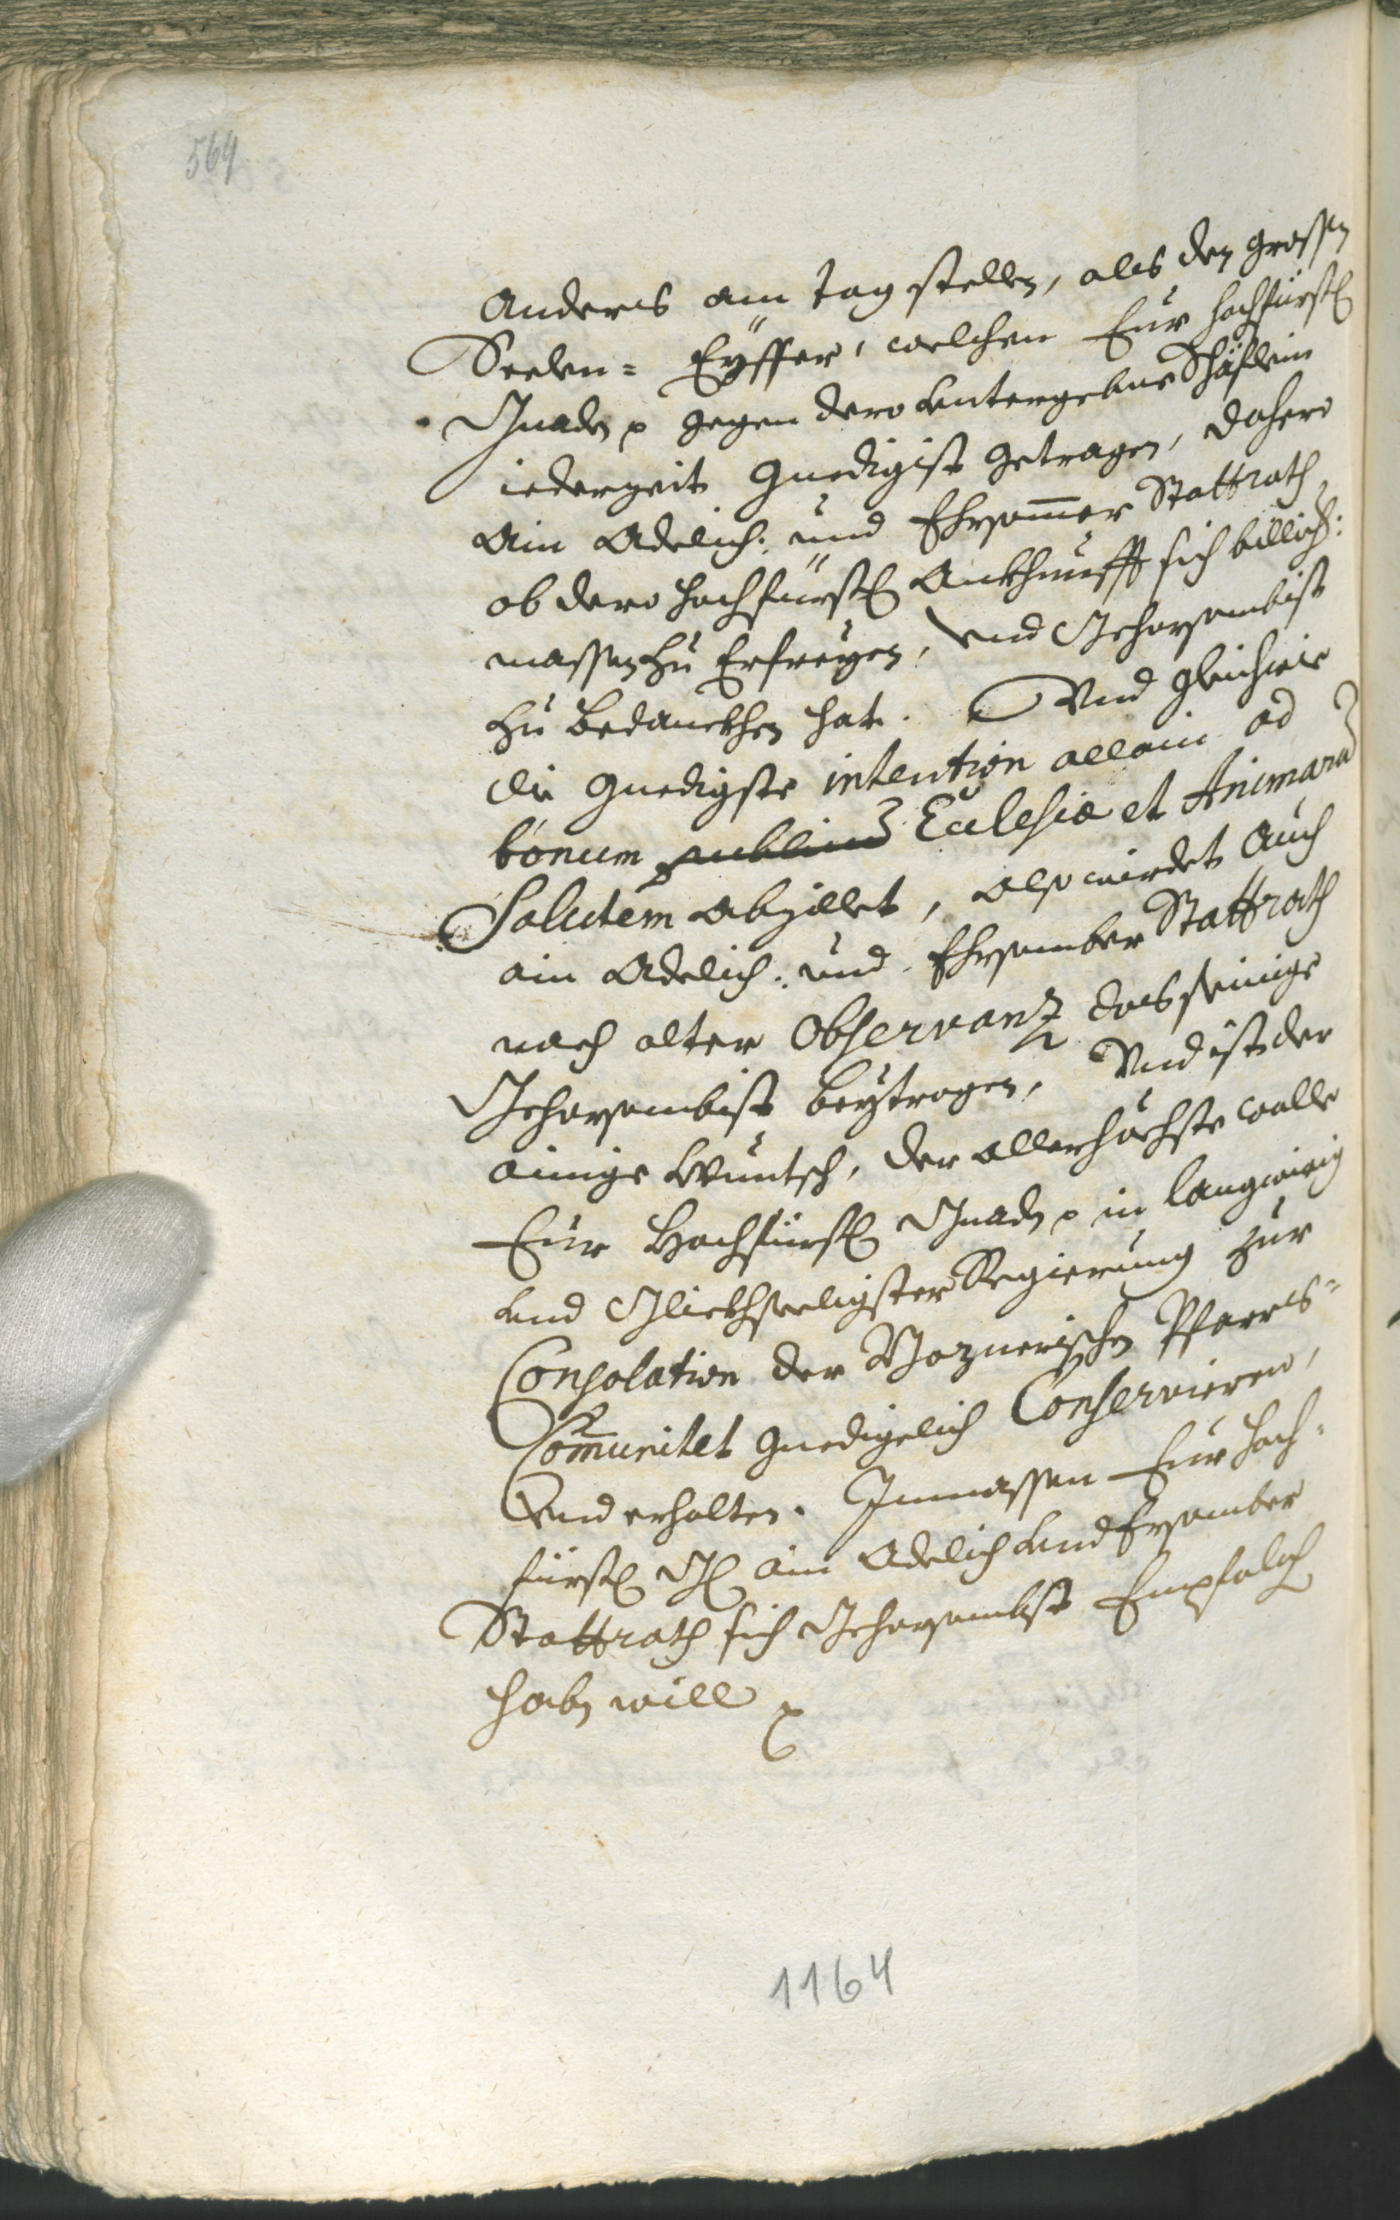 564
Anders am tag stellen, als den grossen
Seelen= Eÿffer, welchen Eür hochfürstl
Gnaden gegen dero untergebne Schäflein
iederzeit Gnedigist getragen, dahero
Ain Adelich: und Ehrsammer Stattrath,
ob dero hochfürstl Ankhunfft sich billich:
massen zu Erfreÿen, Vnd Gehorsambist
zu bedanckhen hat. Vnd gleichwie
die Gnedigste intention allain ad
bonum publicum Ecclesiæ et Animarum
Salutem abzillet, also wirdet Auch
ain Adelich: und Ehrsamber Stattrath
nach alter Observanz das seinige
Gehorsambist beÿtragen, Vnd ist der
ainige Wuntsch, der allerhöchste wolle
Eür Hochfürstl Gnaden in langwirig
und Glickhseeligster Regierung zur
Consolation der Boznerischen Pfarrs=
Communitet gnedigelich Conservieren,
Vnd erhalten. Inmassen Eür Hoch=
fürstl Gl ain Adelich und Ersamber
Stattrath sich Gehorsambst Empfolch
haben will
1164